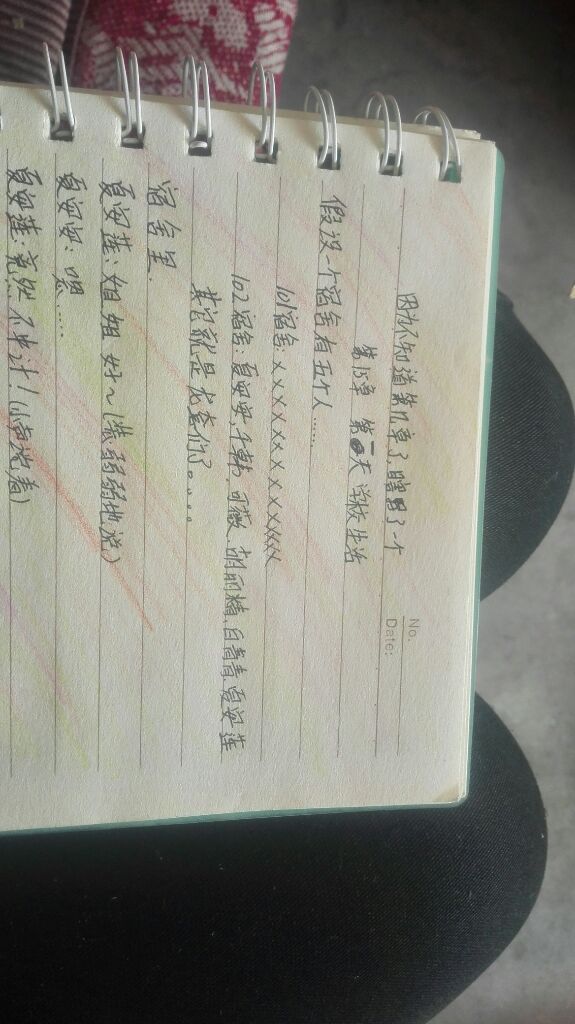 No.
Date:
因为不知道第几章了,瞎写了一个
第15章 第一天学校生活
假设一个宿舍有五个人……
101宿舍:××××××××××
102宿舍:夏安安,千韩,可薇、胡丽精,白青青,夏安莲
其它就是龙套们了。。。。
宿舍里.
夏安莲:姐姐好~(装弱弱地说)
夏安安:嗯……
夏安莲:竟然不中计!(小声说着)